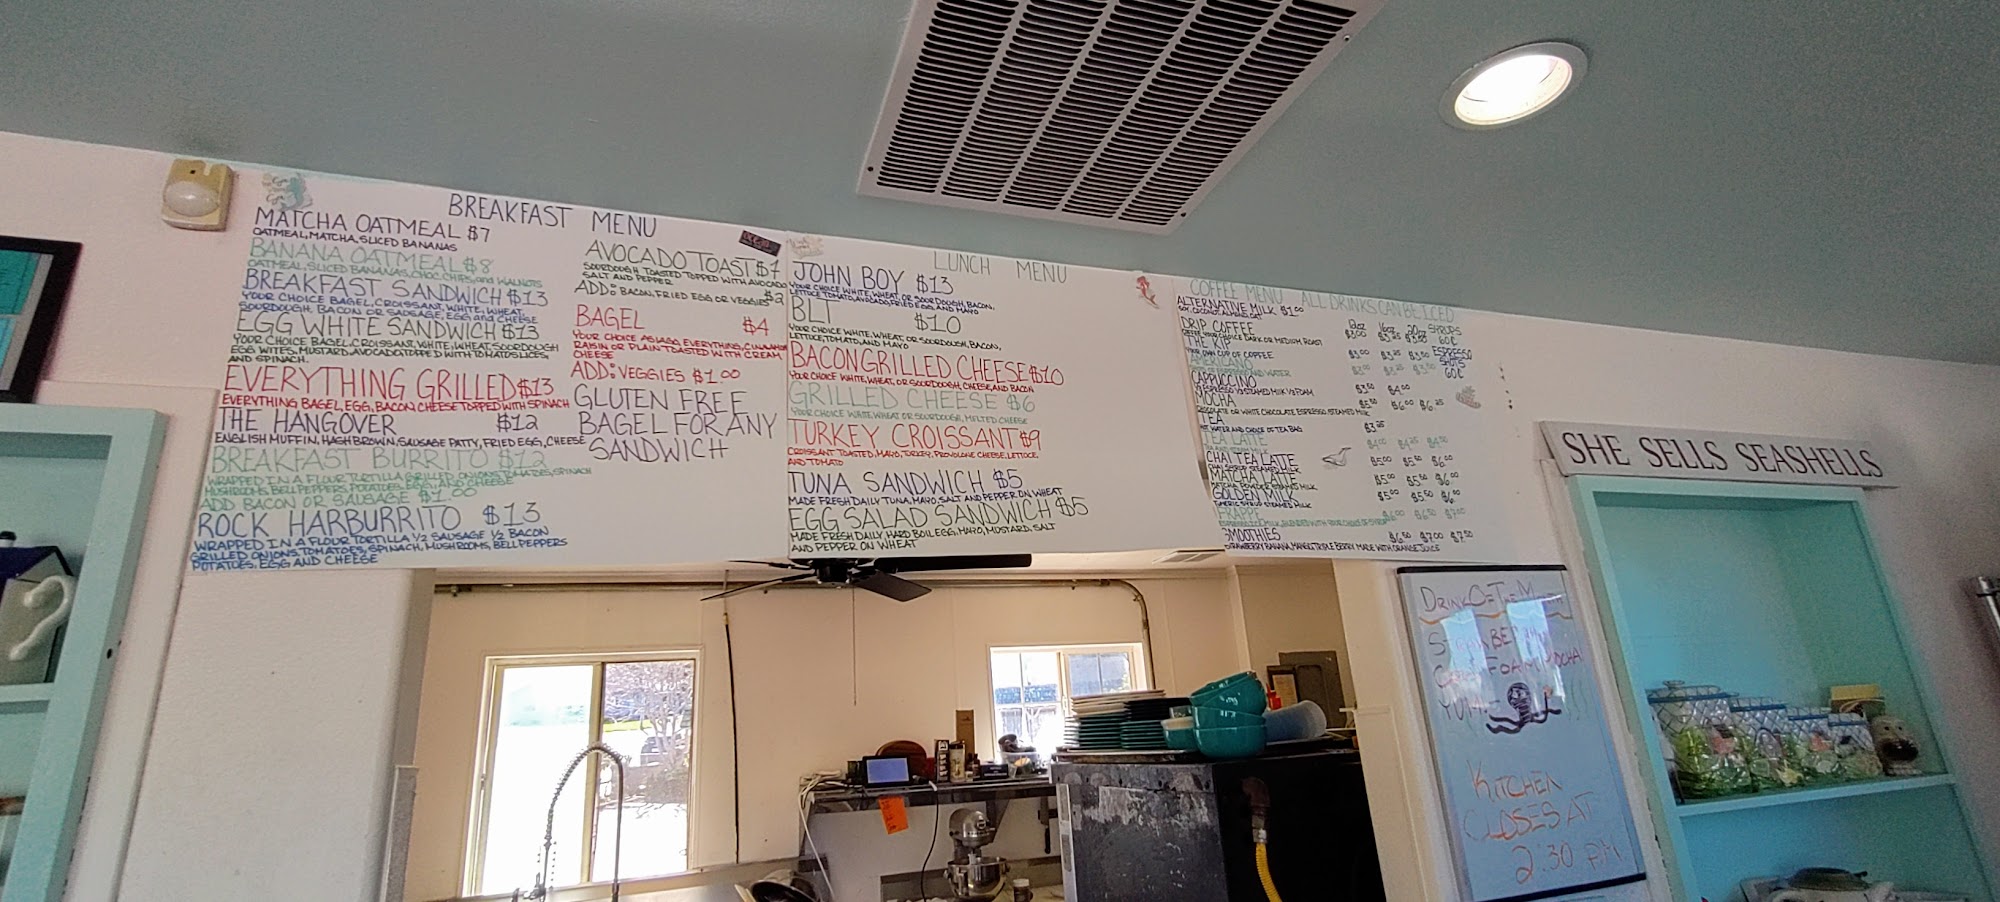 BREAKFAST MENU
MATCHA OATMEAL $7
OATMEAL, MATCHA, SLICED BANANAS
BANANA OATMEAL $8
OATMEAL, SLICED BANANAS, CHOC. CHIPS, and WALNUTS
BREAKFAST SANDWICH $13
YOUR CHOICE BAGEL, CROISSANT, WHITE, WHEAT,
SOURDOUGH, BACON OR SAUSAGE, EGG and CHEESE
EGG WHITE SANDWICH $13
YOUR CHOICE BAGEL, CROISSANT, WHITE, WHEAT, SOURDOUGH
EGG WITES, MUSTARD, AVOCADO, TOPPED WITH TOMATO SLICES,
AND SPINACH.
EVERYTHING GRILLED $13
EVERYTHING BAGEL, EGG, BACON, CHEESE TOPPED WITH SPINACH
THE HANGOVER $12
ENGLISH MUFFIN, HASH BROWN, SAUSAGE PATTY, FRIED EGG, CHEESE
BREAKFAST BURRITO $12
WRAPPED IN A FLOUR TORTILLA GRILLED ONIONS, TOMATOES, SPINACH
MUSHROOMS, BELL PEPPERS, POTATOES, EGG, AND CHEESE
ADD BACON OR SAUSAGE $1.00
ROCK HARBURRITO $13
WRAPPED IN A FLOUR TORTILLA 1/2 SAUSAGE 1/2 BACON
GRILLED ONIONS, TOMATOES, SPINACH, MUSHROOMS, BELL PEPPERS
POTATOES, EGG AND CHEESE
AVOCADO TOAST $7
SOURDOUGH TOASTED TOPPED WITH AVOCADO
SALT AND PEPPER
ADD: BACON, FRIED EGG OR VEGGIES $2
BAGEL $4
YOUR CHOICE ASIAGO, EVERYTHING, CINNAMON
RAISIN OR PLAIN TOASTED WITH CREAM
CHEESE
ADD: VEGGIES $1.00
GLUTEN FREE
BAGEL FOR ANY
SANDWICH
LUNCH MENU
JOHN BOY $13
YOUR CHOICE WHITE, WHEAT, OR SOURDOUGH, BACON,
LETTUCE TOMATO, AVOCADO, FRIED EGG AND MAYO
BLT $10
YOUR CHOICE WHITE, WHEAT, OR SOURDOUGH, BACON,
LETTUCE, TOMATO, AND MAYO
BACON GRILLED CHEESE $10
YOUR CHOICE WHITE, WHEAT, OR SOURDOUGH, CHEESE, AND BACON
GRILLED CHEESE $6
YOUR CHOICE WHITE, WHEAT OR SOURDOUGH, MELTED CHEESE
TURKEY CROISSANT $9
CROISSANT TOASTED, MAYO, TURKEY, PROVOLONE CHEESE, LETTUCE,
AND TOMATO
TUNA SANDWICH $5
MADE FRESH DAILY TUNA, MAYO, SALT AND PEPPER ON WHEAT
EGG SALAD SANDWICH $5
MADE FRESH DAILY, HARD BOIL EGG, MAYO, MUSTARD, SALT
AND PEPPER ON WHEAT
COFFEE MENU ALL DRINKS CAN BE ICED
ALTERNATIVE MILK $1.00
SOY, COCONUT, ALMOND, OAT
12oz 16oz 20oz SYRUPS
DRIP COFFEE $3.00 $3.25 $3.50 60¢
COFFEE YOUR CHOICE DARK OR MEDIUM ROAST
THE KIP $3.00 $3.25 $3.50 ESPRESSO
YOUR OWN CUP OF COFFEE SHOTS
AMERICANO 60¢
CAPPUCCINO $3.50 $4.00
1/3 ESPRESSO 1/3 STEAMED MILK 1/3 FOAM
MOCHA $5.50 $6.00 $6.25
CHOCOLATE OR WHITE CHOCOLATE, ESPRESSO STEAMED MILK
TEA $3.25
HOT WATER AND CHOICE OF TEA BAG
TEA LATTE $4.00 $4.25 $4.50
TEA AND STEAMED MILK
CHAI TEA LATTE $5.00 $5.50 $6.00
CHAI SYRUP STEAMED MILK
MATCHA LATTE $5.00 $5.50 $6.00
MATCHA POWDER STEAMED MILK
GOLDEN MILK $5.00 $5.50 $6.00
TUMERIC SYRUP STEAMED MILK
FRAPPE $6.00 $6.50 $7.00
SMOOTHIES $6.50 $7.00 $7.50
STRAWBERRY BANANA, MANGO, TRIPLE BERRY MADE WITH ORANGE JUICE
SHE SELLS SEASHELLS
DRINK OF THE MONTH
STRAWBERRY
COLD FOAM MOCHA
YUM
KITCHEN
CLOSES AT
2:30 P.M.